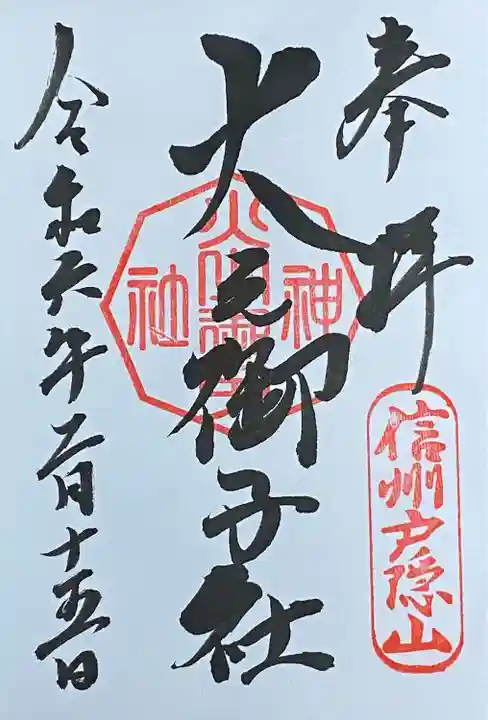 奉拝
信州戸隠山
火之御子社
神
社
令和六年二月十五日